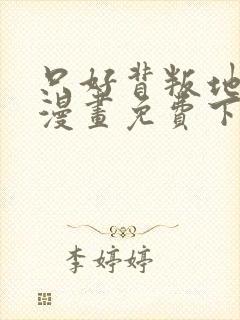 只好背叛地
漫畫免費下
李婷婷